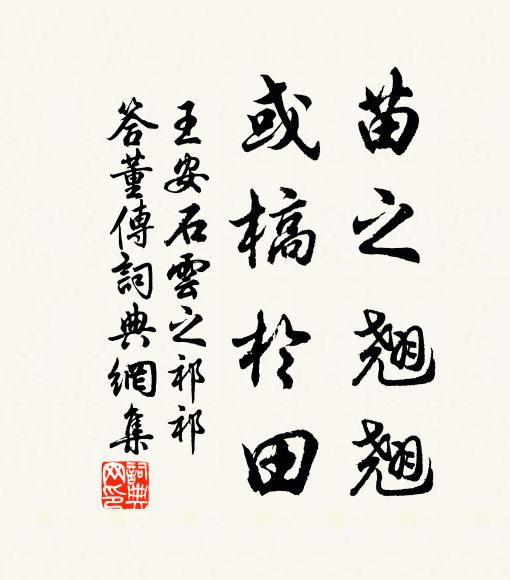 苗之翹翹
或槁於田
王安石雲之祁祁
答董傳詞典網集
詞典
网印